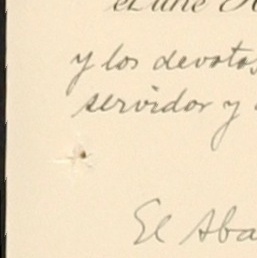 y los devotos
servidor y
El Aba